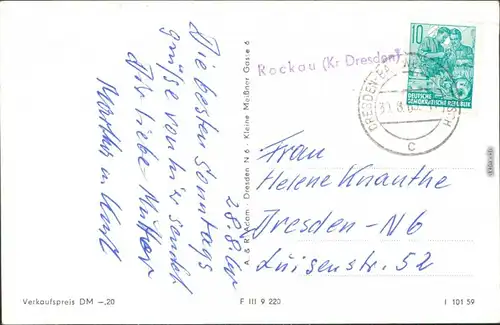 28.8.60
Die besten Sonntags
grüße von hier sendet
Dir liebe Mutter
Martha u. Kurt
A. & R. Adam - Dresden N 6 - Kleine Meißner Gasse 6
Rockau (Kr Dresden)
10
DEUTSCHE
DEMOKRATISCHE REPUBLIK
DRESDEN-BAD
c
Frau
Helene Knauthe
Dresden-N6
Luisenstr. 52
Verkaufspreis DM -,20
F III 9 220
I 101 59